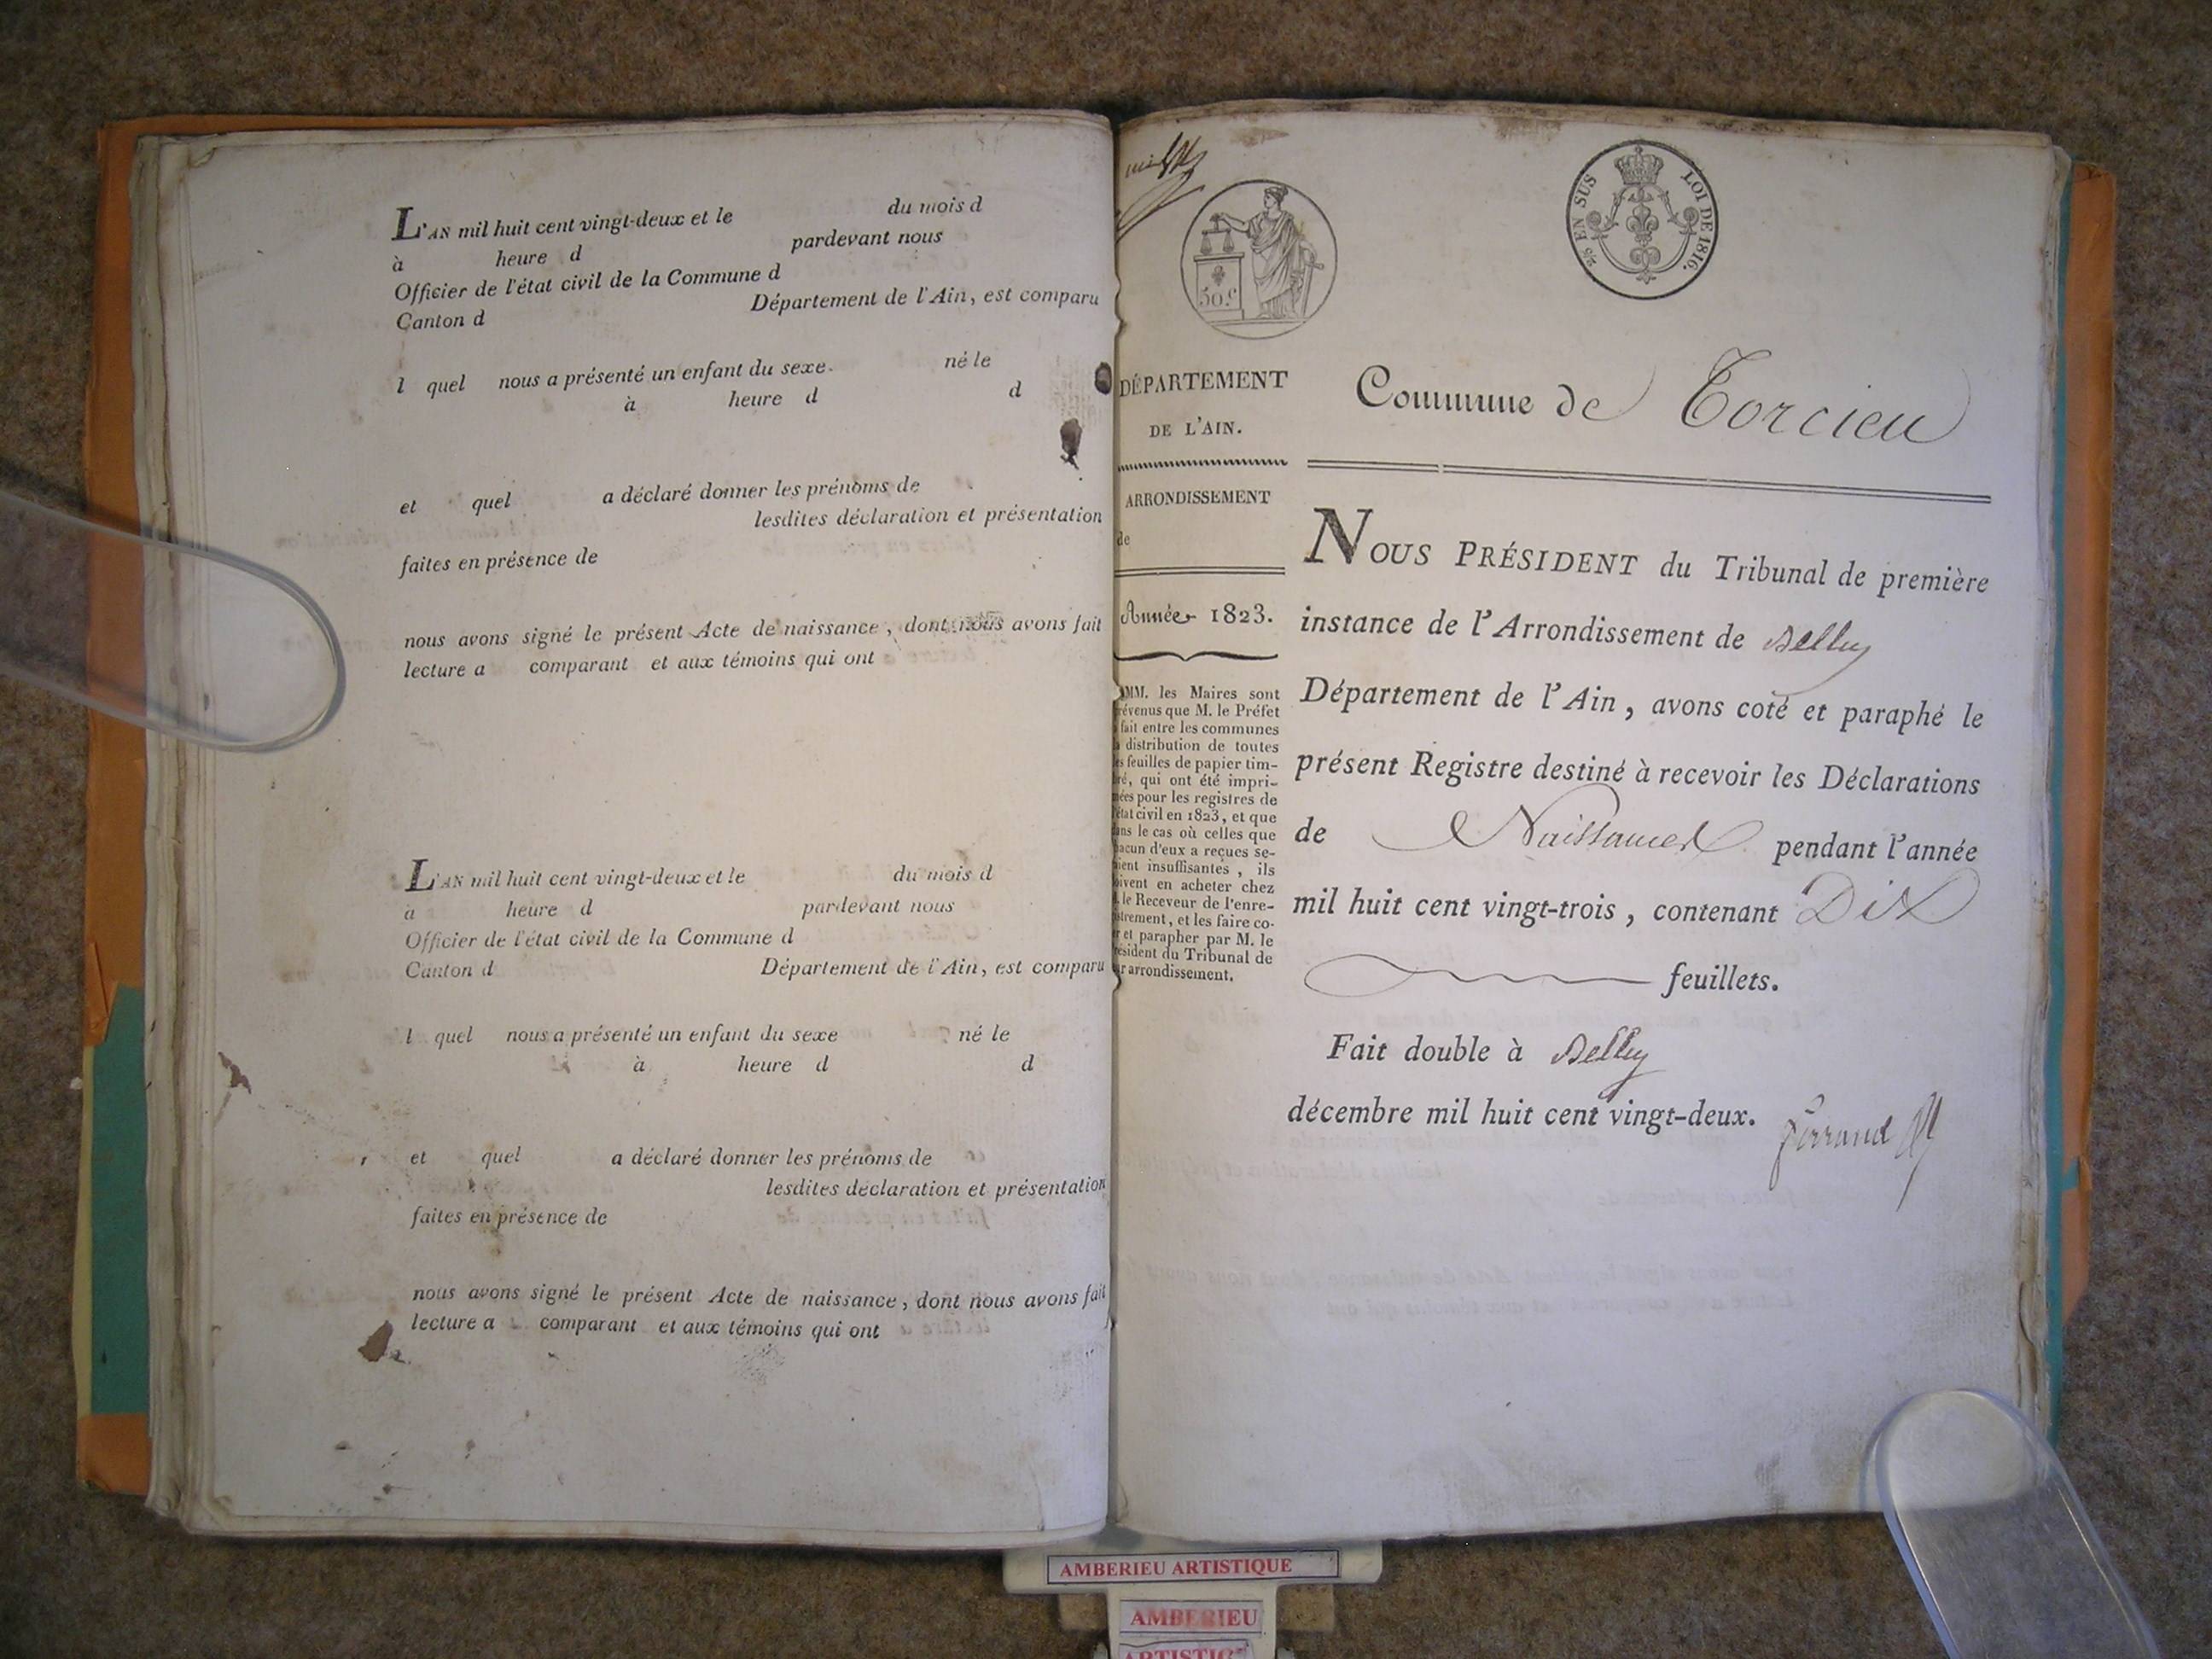 L'AN mil huit cent vingt-deux et le du mois d
à heure d pardevant nous
Officier de l'état civil de la Commune d
Canton d Département de l'Ain, est comparu
l quel nous a présenté un enfant du sexe né le
à heure d d
et quel a déclaré donner les prénoms de
lesdites déclaration et présentation
faites en présence de
nous avons signé le présent Acte de naissance, dont nous avons fait
lecture a comparant et aux témoins qui ont
L'AN mil huit cent vingt-deux et le du mois d
à heure d pardevant nous
Officier de l'état civil de la Commune d
Canton d Département de l'Ain, est comparu
l quel nous a présenté un enfant du sexe né le
à heure d d
et quel a déclaré donner les prénoms de
lesdites déclaration et présentation
faites en présence de
nous avons signé le présent Acte de naissance, dont nous avons fait
lecture a comparant et aux témoins qui ont
50 c
EN SUS LOI DE 1816.
DÉPARTEMENT
DE L'AIN.
ARRONDISSEMENT
de
Année 1823.
MM. les Maires sont
prévenus que M. le Préfet
fait entre les communes
distribution de toutes
les feuilles de papier tim-
bré, qui ont été impri-
mées pour les registres de
l'état civil en 1823, et que
dans le cas où celles que
chacun d'eux a reçues se-
raient insuffisantes, ils
doivent en acheter chez
le Receveur de l'enre-
gistrement, et les faire co-
ter et parapher par M. le
Président du Tribunal de
leur arrondissement.
Commune de Torcieu
NOUS PRÉSIDENT du Tribunal de première
instance de l'Arrondissement de Belley
Département de l'Ain, avons coté et paraphé le
présent Registre destiné à recevoir les Déclarations
de Naissances pendant l'année
mil huit cent vingt-trois, contenant Dix
feuillets.
Fait double à Belley
décembre mil huit cent vingt-deux.
Ferrand
AMBERIEU ARTISTIQUE
AMBERIEU